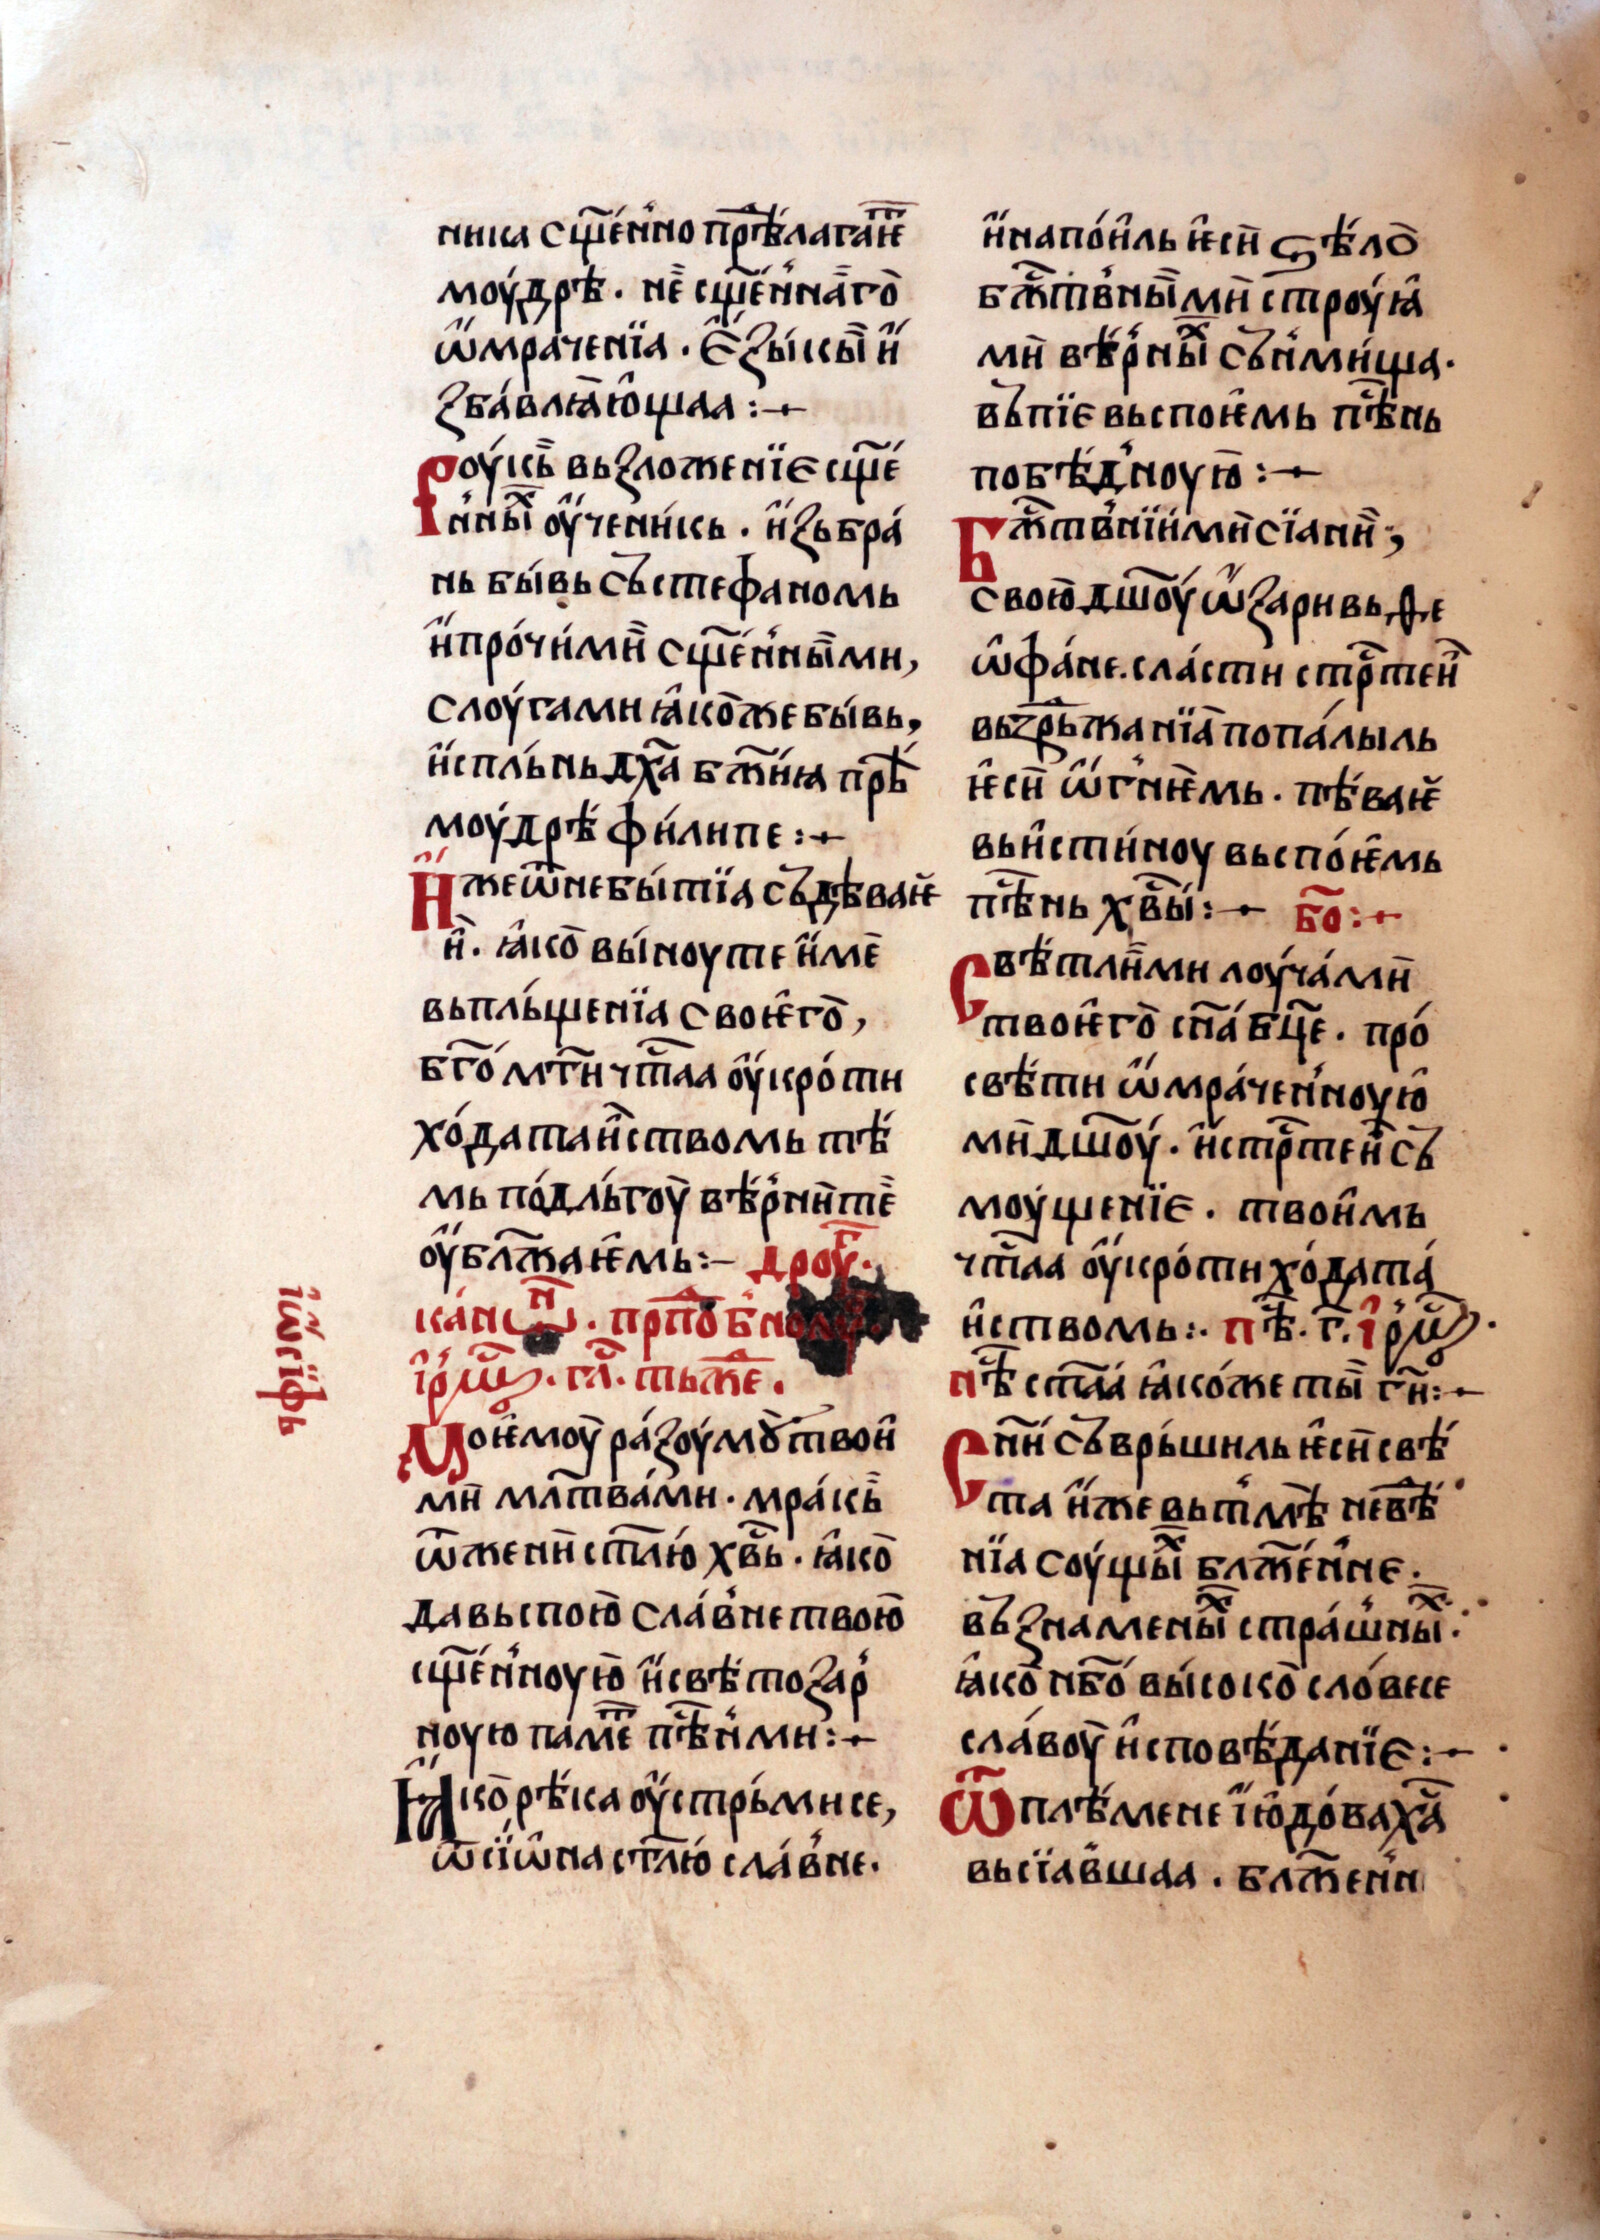 ника сщ҃е́н̾но прѣ̑лага́ѥ
моу́дрѣ. не̏ сщ҃е́н̾на̏го̑
ѡ҆мраченїа. є҆зы́кы̏ и҆
зба́влꙗ́ю̑щаа :⁓
Роу́кь̏ вьзложенїє сщ҃е́
н̾ны̑ⷯ оу҆ченикь. и҆зьбра́
нь бы́вь състефаномь
и҆про́чи́ми̏ сщ҃е́н̾ны̏ми,
слоу́гами ꙗ҆ко̑же бы́вь,
и҆спль́нь дх҃а бж҃и́ꙗ прѣ̑
моу́дрѣ фи́липе :⁓
И҆же ѿнебы́тїа съдѣваѥ
и̏. ꙗ҆ко̑ вы́ноу те и҆ме̏
вьпль́щенїа своѥ҆го̑,
бг҃о́мт҃и чт҃аа оу҆кро́ти
хо́датаи҆ствомь тѣ́
мь по́дль́гоу̏ вѣ́р̾ни̏ те̏
оу҆бл҃жаѥ҆мь :⁓ дроуⷢ.
ка́нѡⷩ. прпⷣо́б̾номоу.
і҆рмѡⷭ. гл҃. тьже.
Моѥ҆моу̏ ра́зоу́мꙋ̏ твои҆
ми̏ мл҃тва́ми. мра́кь̏
ѿжени̏ ст҃лю́ хв҃ь. ꙗ҆ко̑
да вьспою̑ сла́в̾не твою̑
сщ҃е́н̾ноую̑ и҆свѣ́тозар̾
ноую па́меⷮ пѣ̑н̾ми :⁓
Ꙗ҆ко̑рѣ́ка оу҆стрь́ми се,
ѿ сїѡ҆на ст҃лю́ сла́в̾не.
и҆напо́и҆ль ѥ҆си̏ ѕѣ́ло̑
бж҃твⷭ̾ны̏ми̏ строу́ꙗ҆
ми̏ вѣ́р̾ны̏ⷯ сьн̾ми́ща.
въпїє вьспоѥ҆мь пѣ̑нь
побѣ́д̾ноую̑ :⁓
Бж҃твⷭ̾нїими̏сїани̏;
свою̑ дш҃оу́ ѡ҆зари вь, ѳе
ѡ҆фа́не. сла́сти стрⷭ҇теи̏
вьзⷣрь̑жанїа̏ попа́лыль
ѥ҆си̏ ѡ҆г̾нѥ҆мь. пѣ́ваѥ
вьи҆сти́ноу вьспо́ѥ҆мь
пѣ̑нь хв҃ы́ :⁓ бо̑ :⁓
Свѣ́тли̏ми лоу́ча́ми̏
твоѥ҆го̑ сн҃а́ бц҃е. про́
свѣ́ти ѡ҆мра́чен̾ноую҆
ми̏ дш҃оу́. и҆стрⷭ҇теи̏съ
моу́щенїє. твои҆мь
чт҃аа оу҆кро́ти хо́дата́
и҆ствомь :. пѣ̑. г҃. і҆рмѡⷭ.
пѣⷭ̑ ст҃аа́ ꙗ҆ко́же ты̏ гн҃ :⁓
Сп҃и́ съврь́шиль ѥ҆си̏ свѣ́
та и҆же вьт̾мѣ̏ невѣ̑
нїа соу́щы̏ⷯ бл҃же́н̾не.
въ знамены̏ⷯ стра́ш̾ны̏ⷯ.
ꙗ҆ко̑ нб҃о́ вы́соко̑ сло́весе
сла́воу̏ и҆сповѣ́данїє :⁓
Ѿ плѣ́мене ї҆ю҆до́ва хⷭ҇а̑
вьсїав̾шаа. бл҃жен̾н
і҆ѡ҆сїфь